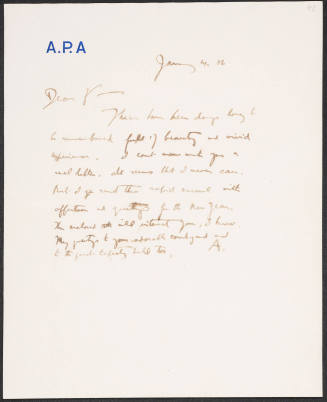 A.P.A
Dear V—
There have been days long to
be remembered full of beauty and vivid
experiences. I can't now write you a
real letter. It seems that I never can.
But I go send this
affection and greetings for the New Year.
The enclosed will interest you, I know.
My greetings to your adorable and
to the too.
A.